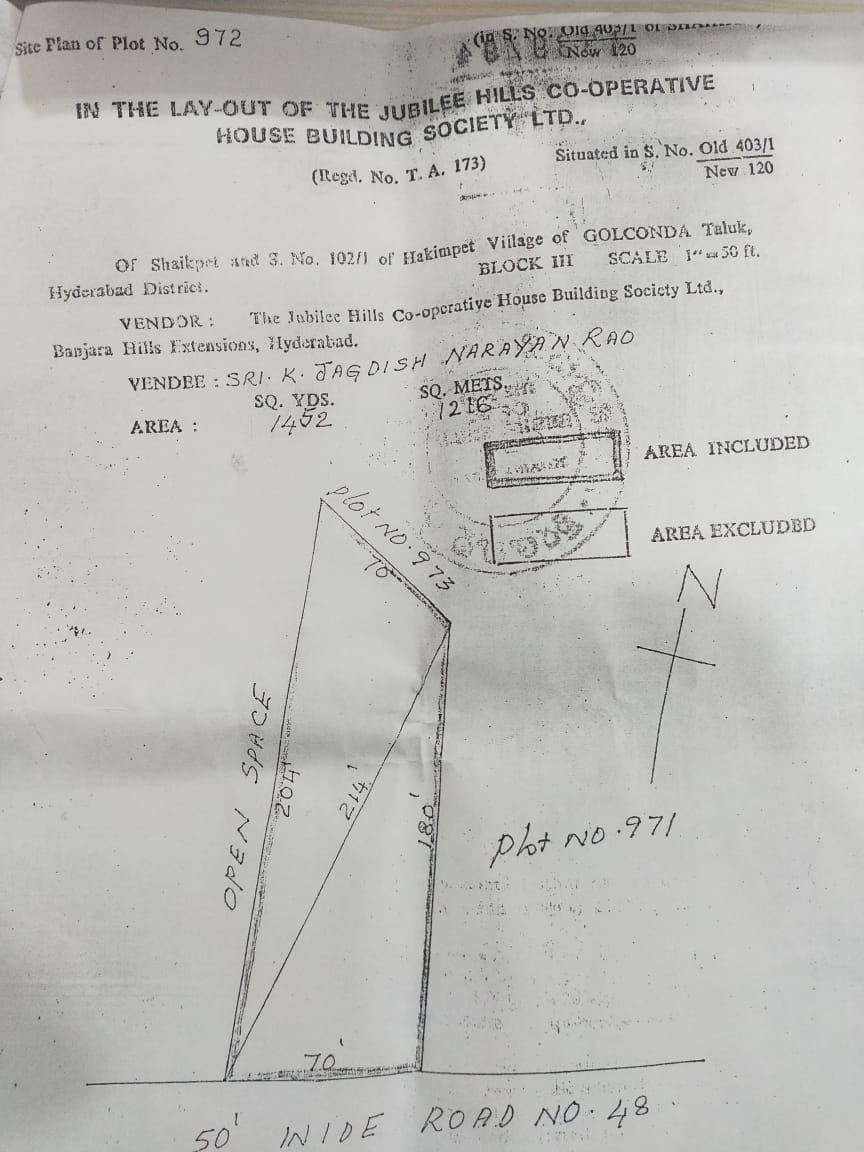 Site Plan of Plot No. 972
(in S. No. Old 403/1 of
New 120
IN THE LAY-OUT OF THE JUBILEE HILLS CO-OPERATIVE
HOUSE BUILDING SOCIETY LTD.,
(Regd. No. T. A. 173)
Situated in S. No. Old 403/1
New 120
Of Shaikpet and S. No. 102/1 of Hakimpet Village of GOLCONDA Taluk,
Hyderabad District.
BLOCK III SCALE 1"=50 ft.
VENDOR : The Jubilee Hills Co-operative House Building Society Ltd.,
Banjara Hills Extensions, Hyderabad.
VENDEE : SRI. K. JAGDISH NARAYAN RAO
SQ. YDS. SQ. METS.
AREA : 1452 1216
AREA INCLUDED
AREA EXCLUDED
Plot NO. 973
70'
N
OPEN SPACE
204'
214'
180'
Plot NO. 971
70'
50' WIDE ROAD NO. 48